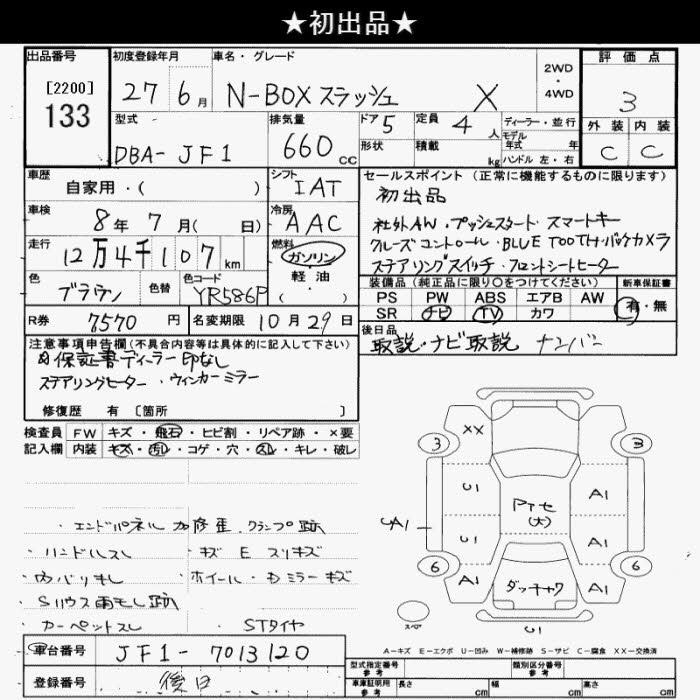 ★初出品★
出品番号 初度登録年月 車名・グレード 2WD・4WD 評価点
[2200]
133
27年 6月 N-BOX スラッシュ X
3
型式 排気量 ドア 定員 ディーラー・並行 外装 内装
DBA-JF1 660cc 5 4人
モデル年式 年
形状 積載 kg ハンドル 左・右
C C
車歴 シフト セールスポイント (正常に機能するものに限ります)
自家用・( ) IAT
初出品
車検 冷房
8年 7月( 日) AAC
社外AW・プッシュスタート・スマートキー
走行 燃料
12万4千107km ガソリン
クルーズコントロール・BLUE TOOTH・バックカメラ
軽油
ステアリングスイッチ・フロントシートヒーター
色 色替 色コード ( )
ブラウン YR586P
装備品 (純正品に限り○をつけてください) 新車保証書
PS PW ABS エアB AW 有・無
SR ナビ TV カワ
R券 7570円 名変期限 10月29日
後日品
取説・ナビ取説 ナンバー
注意事項申告欄(不具合内容等は具体的に記入して下さい)
保証書ディーラー印なし
ステアリングヒーター・ウィンカーミラー
修復歴 有 [箇所 ]
検査員 FW キズ・飛石・ヒビ割・リペア跡・×要
記入欄 内装 キズ・汚レ・コゲ・穴・スレ・キレ・破レ
XX
3 3
U1 Pﾏﾄセ (大) A1
A1
U1 A1
6 6
A1 ダッチャク A1
スペア
U1
・エンドパネル 加修歪 クランプ跡
・ハンドルスレ ・キズ E スリキズ
・内バリキレ ・ホイール・Dミラーキズ
・Sリウス雨モレ跡
・カーペットスレ STタイヤ
A-キズ E-エクボ U-凹み W-補修跡 S-サビ C-腐食 XX-交換済
車台番号 JF1-7013120
型式指定番号 参考 類別区分番号 参考
登録番号 後日
車庫証明用 参考 長さ cm 幅 cm 高さ cm